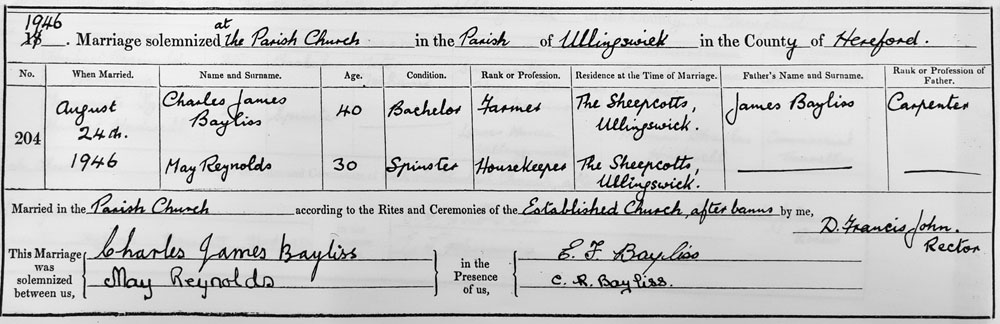 1946
18 . Marriage solemnized at the Parish Church in the Parish of Ullingswick in the County of Hereford.
No. When Married. Name and Surname. Age. Condition. Rank or Profession. Residence at the Time of Marriage. Father's Name and Surname. Rank or Profession of Father.
204 August 24th. 1946 Charles James Bayliss 40 Bachelor Farmer The Sheepcotts, Ullingswick. James Bayliss Carpenter
May Reynolds 30 Spinster Housekeeper The Sheepcotts, Ullingswick.
Married in the Parish Church according to the Rites and Ceremonies of the Established Church, after banns by me,
D. Francis John.
Rector
This Marriage was solemnized between us, Charles James Bayliss
May Reynolds
in the Presence of us, E. F. Bayliss
C. R. Bayliss.